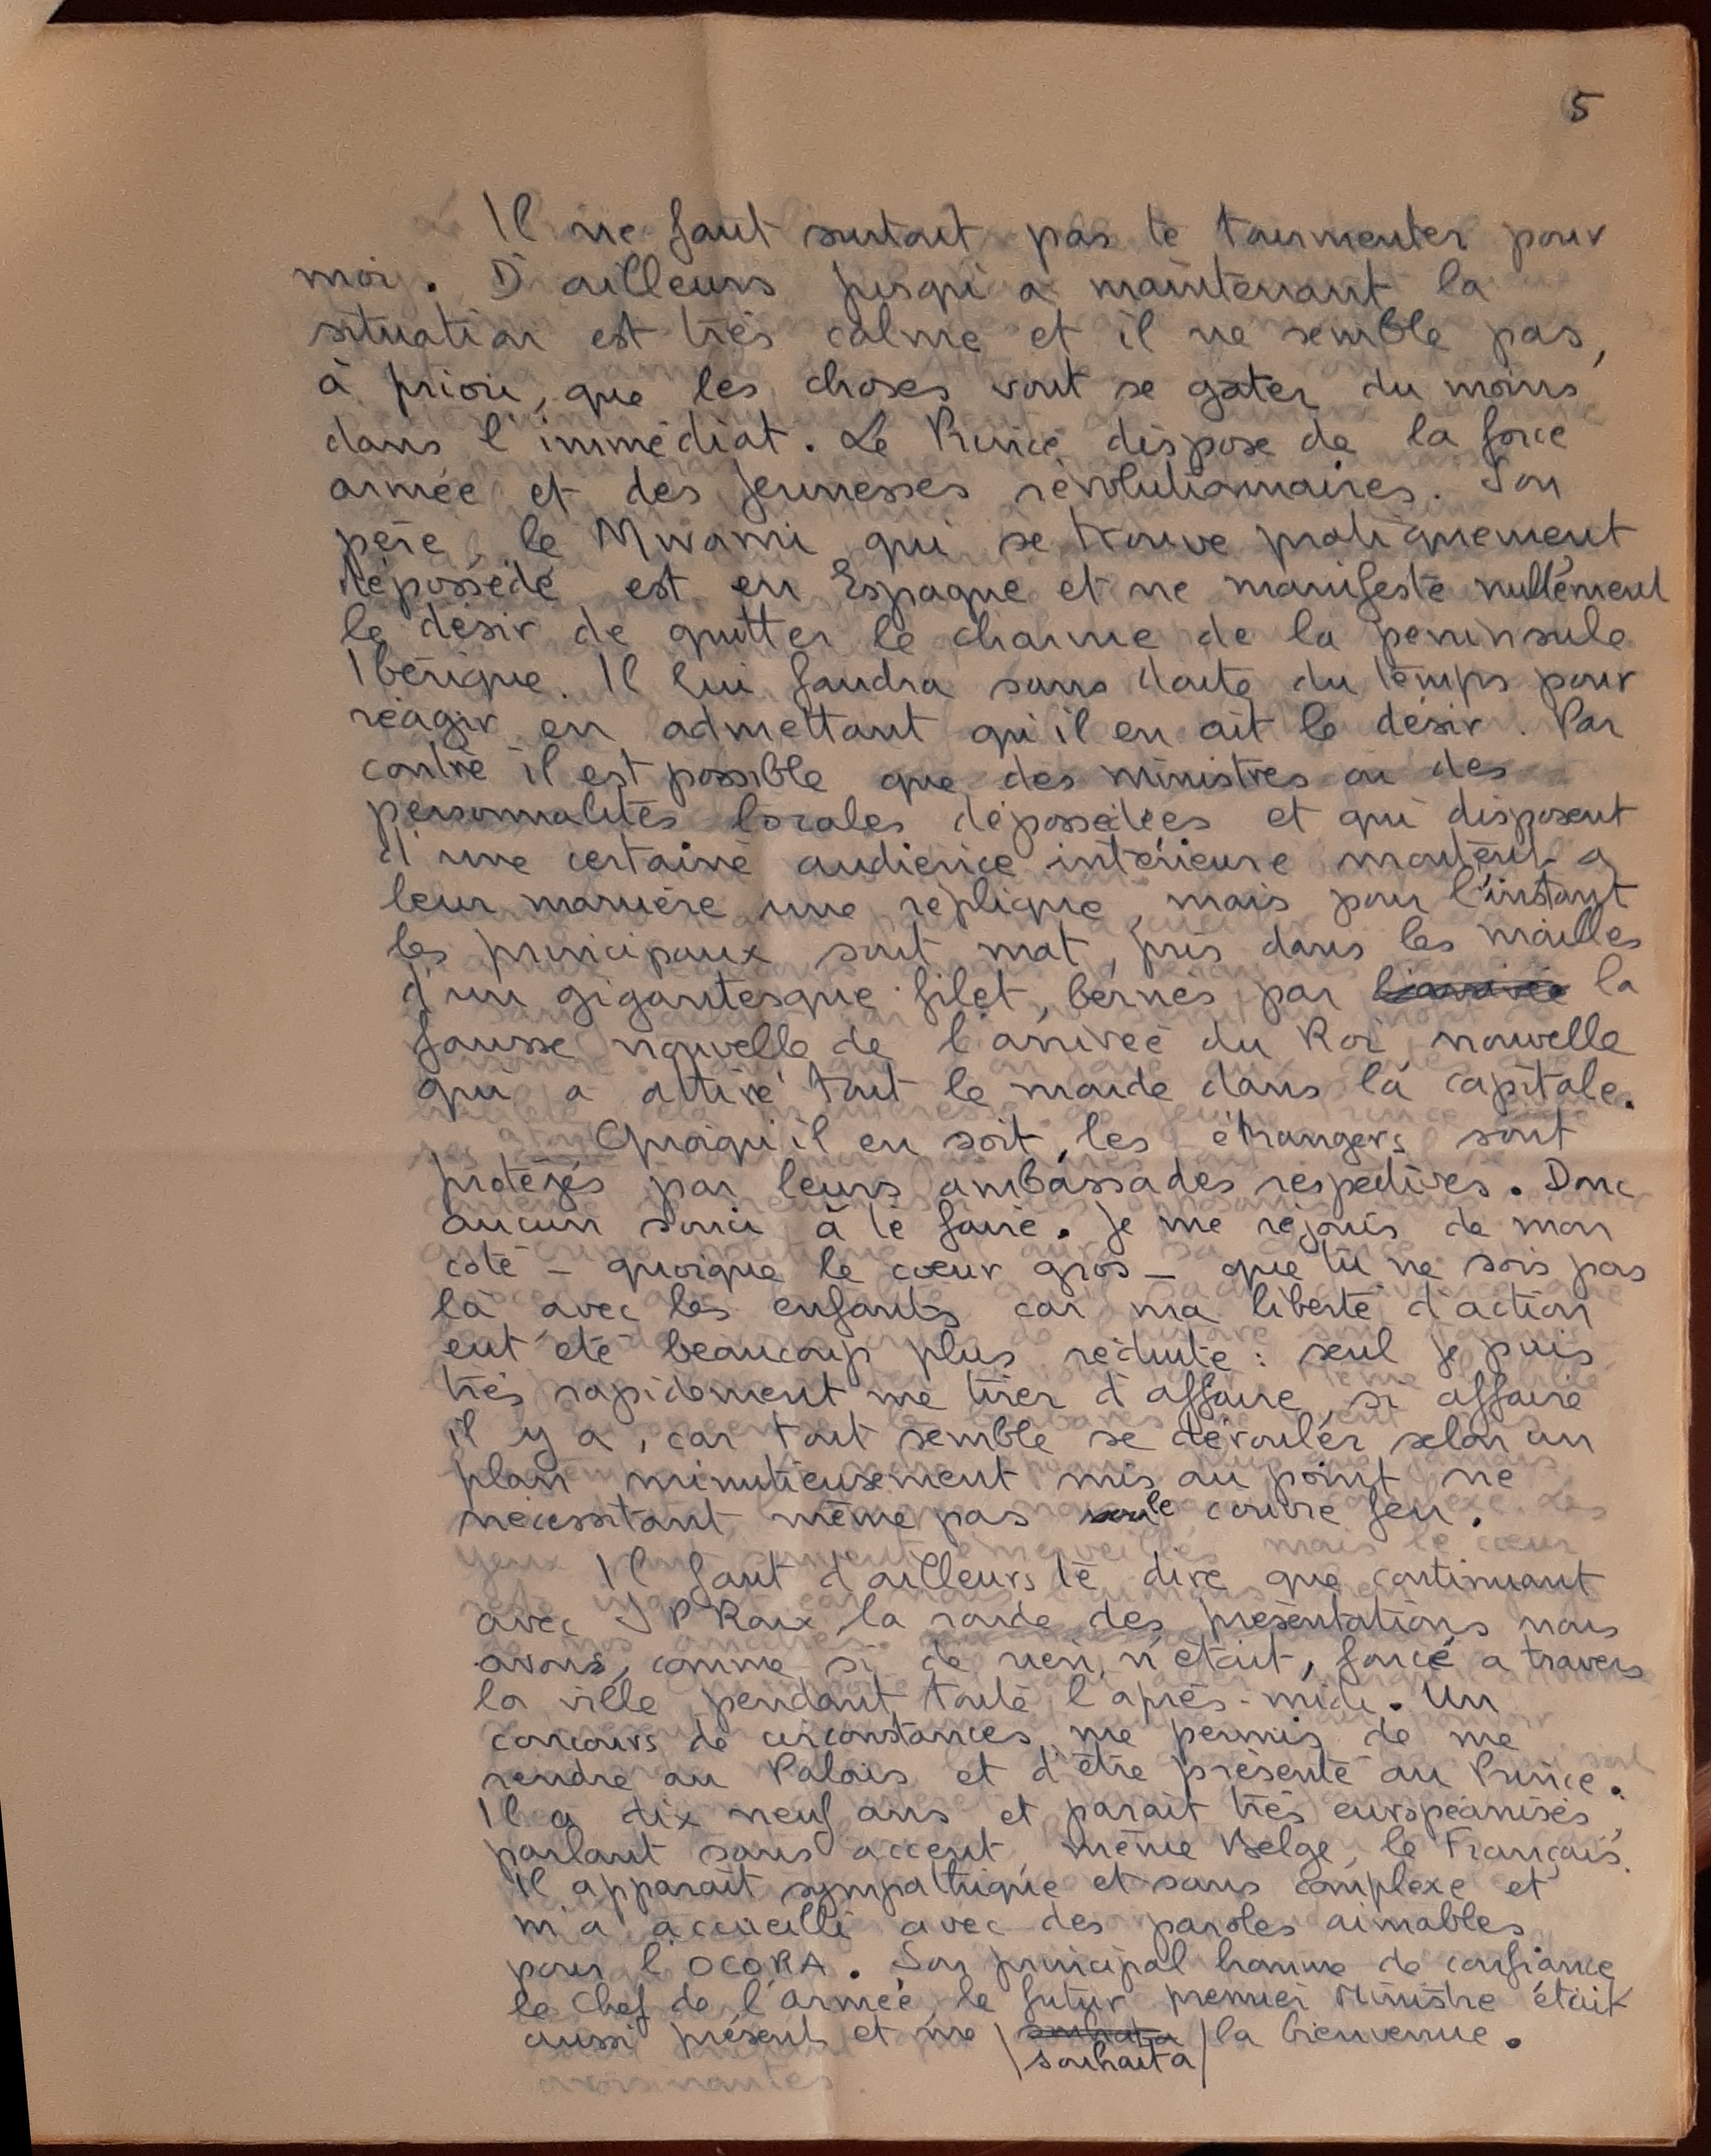 5
Il ne faut surtout pas te tourmenter pour
moi. D'ailleurs jusqu'à maintenant la
situation est très calme et il ne semble pas,
à priori, que les choses vont se gater du moins
dans l'immédiat. Le Prince dispose de la force
armée et des Jeunesses révolutionnaires. Son
père, le Mwami qui se trouve pratiquement
dépossédé est en Espagne et ne manifeste nullement
le désir de quitter le charme de la péninsule
Ibérique. Il lui faudra sans doute du temps pour
réagir en admettant qu'il en ait le désir. Par
contre il est possible que des ministres ou des
personnalités locales dépossédées et qui disposent
d'une certaine audience intérieure montent à
leur manière une réplique, mais pour l'instant
les principaux sont mat, pris dans les mailles
d'un gigantesque filet, bernés par la
fausse nouvelle de l'arrivée du Roi, nouvelle
qui a attiré tout le monde dans la capitale.
Quoiqu'il en soit, les étrangers sont
protégés par leurs ambassades respectives. Donc
aucun souci à te faire. Je me réjouis de mon
côté - quoique le cœur gros - que tu ne sois pas
là avec les enfants car ma liberté d'action
eut été beaucoup plus réduite : seul je puis
très rapidement me tirer d'affaire, si affaire
il y a, car tout semble se dérouler selon un
plan minutieusement mis au point ne
nécessitant même pas le couvre feu.
Il faut d'ailleurs te dire que continuant
avec J P Roux la ronde des présentations nous
avons, comme si de rien n'était, foncé a travers
la ville pendant toute l'après-midi. Un
concours de circonstances me permis de me
rendre au Palais et d'être présenté au Prince.
Il a dix neuf ans et parait très européanisés,
parlant sans accent même Belge, le Français.
Il apparait sympathique et sans complexe et
m'a accueilli avec des paroles aimables
pour l'OCORA. Son principal homme de confiance
le Chef de l'armée, le futur premier Ministre était
aussi présent et me souhaita la bienvenue.